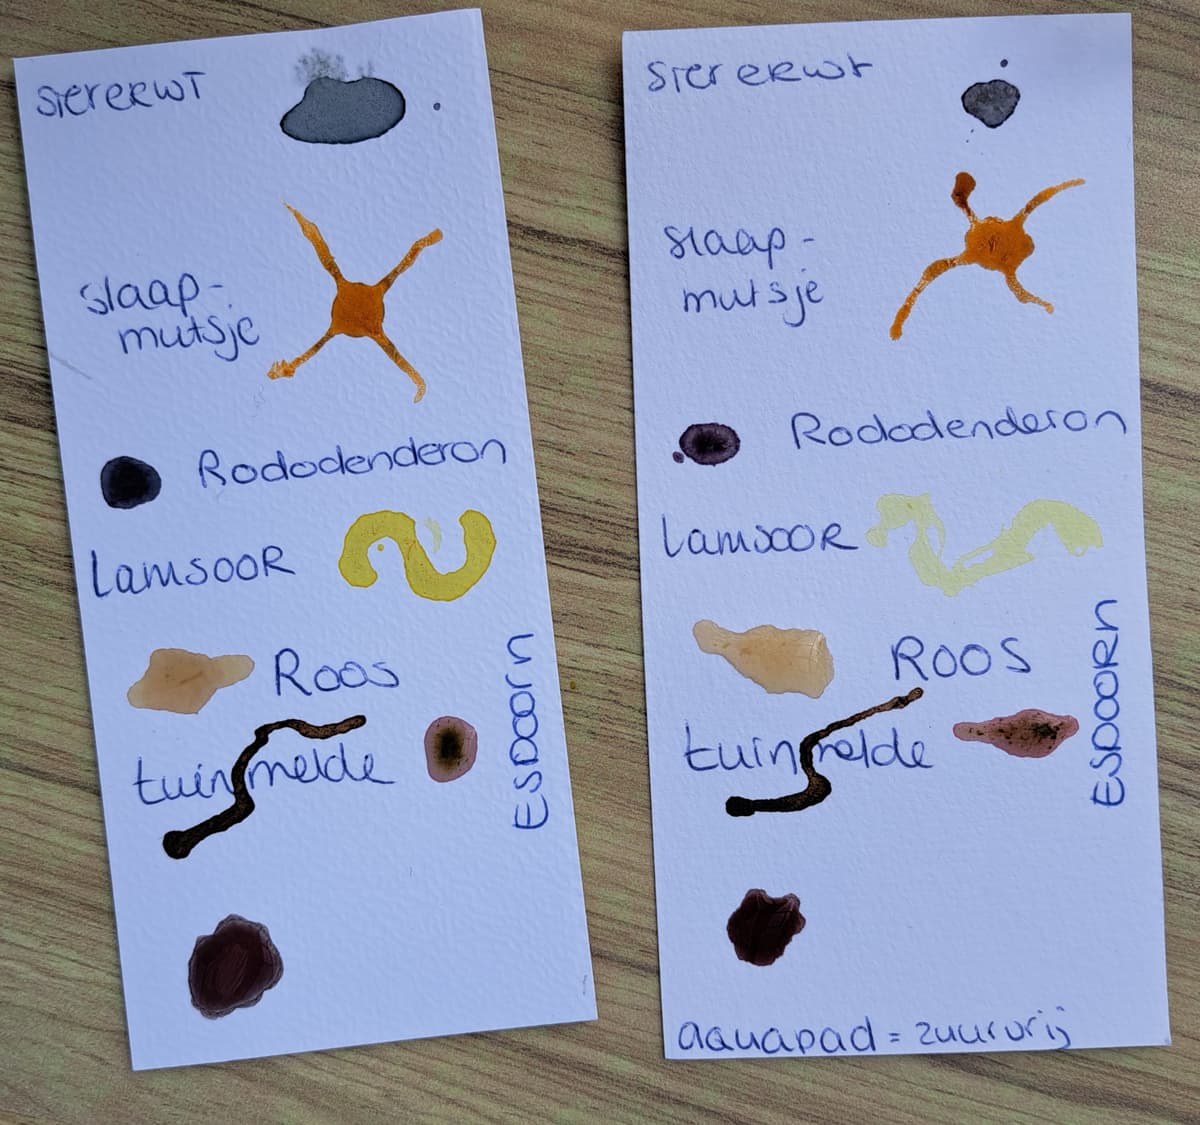 siererwt
slaap-
mutsje
Rododenderon
Lamsoor
Roos
tuinmelde
ESDOORN
sier erwt
slaap-
mutsje
Rododenderon
Lamsoor
Roos
tuinmelde
ESDOORN
aquapad = zuurvrij